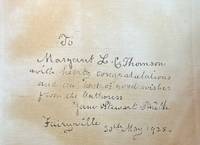 To
Margaret L. C. Thomson
with hearty congratulations
and all sorts of good wishes
from the authoress
Jane Stewart Smith
Fairyville 20th May 1925.